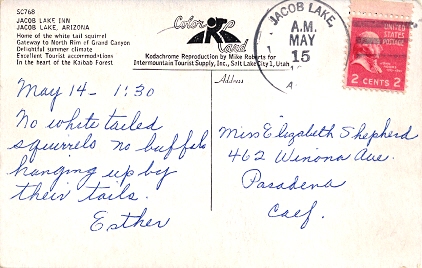 SC768
JACOB LAKE INN
JACOB LAKE, ARIZONA
Home of the white tail squirrel
Gateway to North Rim of Grand Canyon
Delightful summer climate
Excellent Tourist accommodations
In the heart of the Kaibab Forest
Color
Card
Kodachrome Reproduction by Mike Roberts for
Intermountain Tourist Supply, Inc., Salt Lake City 1, Utah
JACOB LAKE,
A.M.
MAY
15
UNITED
STATES
POSTAGE
2 CENTS 2
Address
May 14 - 1:30
No white tailed
squirrels no buffalo
hanging up by
their tails.
Esther
Miss Elizabeth Shepherd
462 Winona Ave.
Pasadena
Calif.